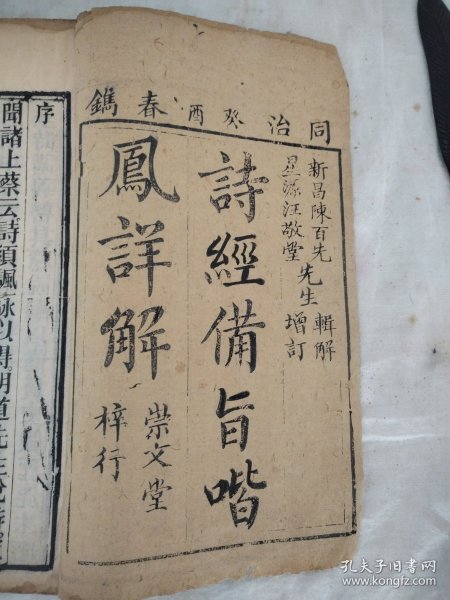 同治癸酉春鐫
新昌陳百先
星源汪敬堂
先生
輯解
增訂
詩經備旨喈
鳳詳解
崇文堂
梓行
序
聞諸上蔡云詩須諷詠以得明道先生
孔夫子旧书网
www.kongfz.com